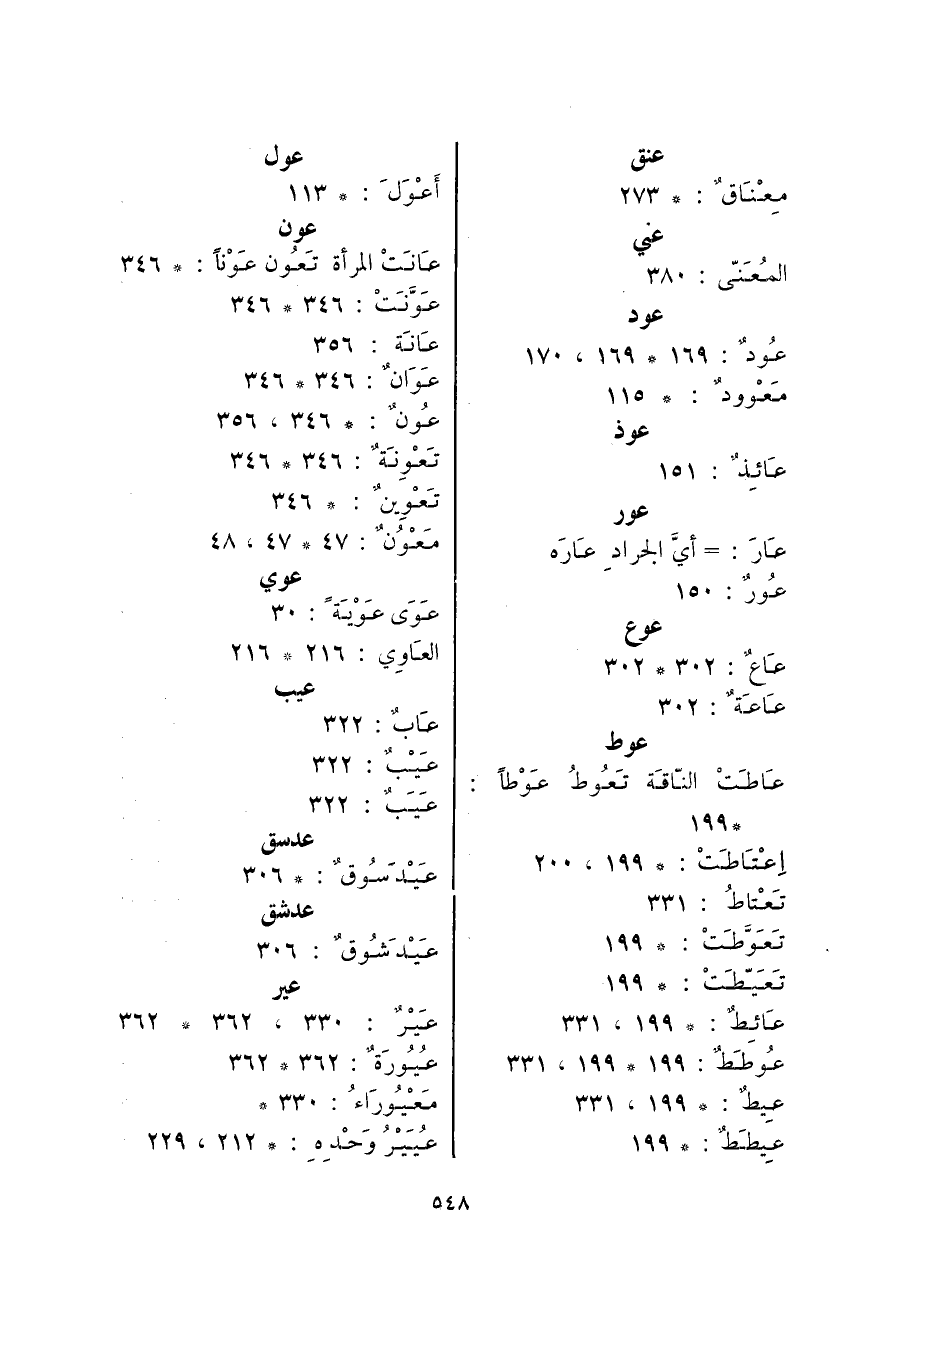 عنق
مِعْنَاقٌ : * ٢٧٣
عني
المُعَنّى : ٣٨٠
عود
عُودٌ : ١٦٩ * ١٦٩ ، ١٧٠
مَعْوودٌ : * ١١٥
عوذ
عَائِذٌ : ١٥١
عور
عَارَ : = أيَّ الجرادِ عَارَه
عُورٌ : ١٥٠
عوع
عَاعٌ : ٣٠٢ * ٣٠٢
عَاعَةٌ : ٣٠٢
عوط
عَاطَتْ النّاقَة تَعُوطُ عَوْطاً :
*١٩٩
إعْتَاطَتْ : * ١٩٩ ، ٢٠٠
تَعْتاطُ : ٣٣١
تَعَوَّطَتْ : * ١٩٩
تَعَيّطَتْ : * ١٩٩
عَائِطٌ : * ١٩٩ ، ٣٣١
عُوطَطٌ : ١٩٩ * ١٩٩ ، ٣٣١
عِيطٌ : * ١٩٩ ، ٣٣١
عِيطَطٌ : * ١٩٩
عول
أَعْوَلَ : * ١١٣
عون
عَانَتْ المرأة تَعُون عَوْناً : * ٣٤٦
عَوَّنَتْ : ٣٤٦ * ٣٤٦
عَانَة : ٣٥٦
عَوَانٌ : ٣٤٦ * ٣٤٦
عُونٌ : * ٣٤٦ ، ٣٥٦
تَعْوِنَةٌ : ٣٤٦ * ٣٤٦
تَعْوِينٌ : * ٣٤٦
مَعْوُنٌ : ٤٧ * ٤٧ ، ٤٨
عوي
عَوَى عَوْيَةً : ٣٠
العَاوِي : ٢١٦ * ٢١٦
عيب
عَابٌ : ٣٢٢
عَيْبٌ : ٣٢٢
عَيَبٌ : ٣٢٢
عدسق
عَيْدَسُوقٌ : * ٣٠٦
عدشق
عَيْدَشُوقٌ : ٣٠٦
عير
عَيْرٌ : ٣٣٠ ، ٣٦٢ * ٣٦٢
عُيُورَةٌ : ٣٦٢ * ٣٦٢
مَعْيُورَاءُ : ٣٣٠ *
عُيَيْرُ وَحْدِهِ : * ٢١٢ ، ٢٢٩
٥٤٨